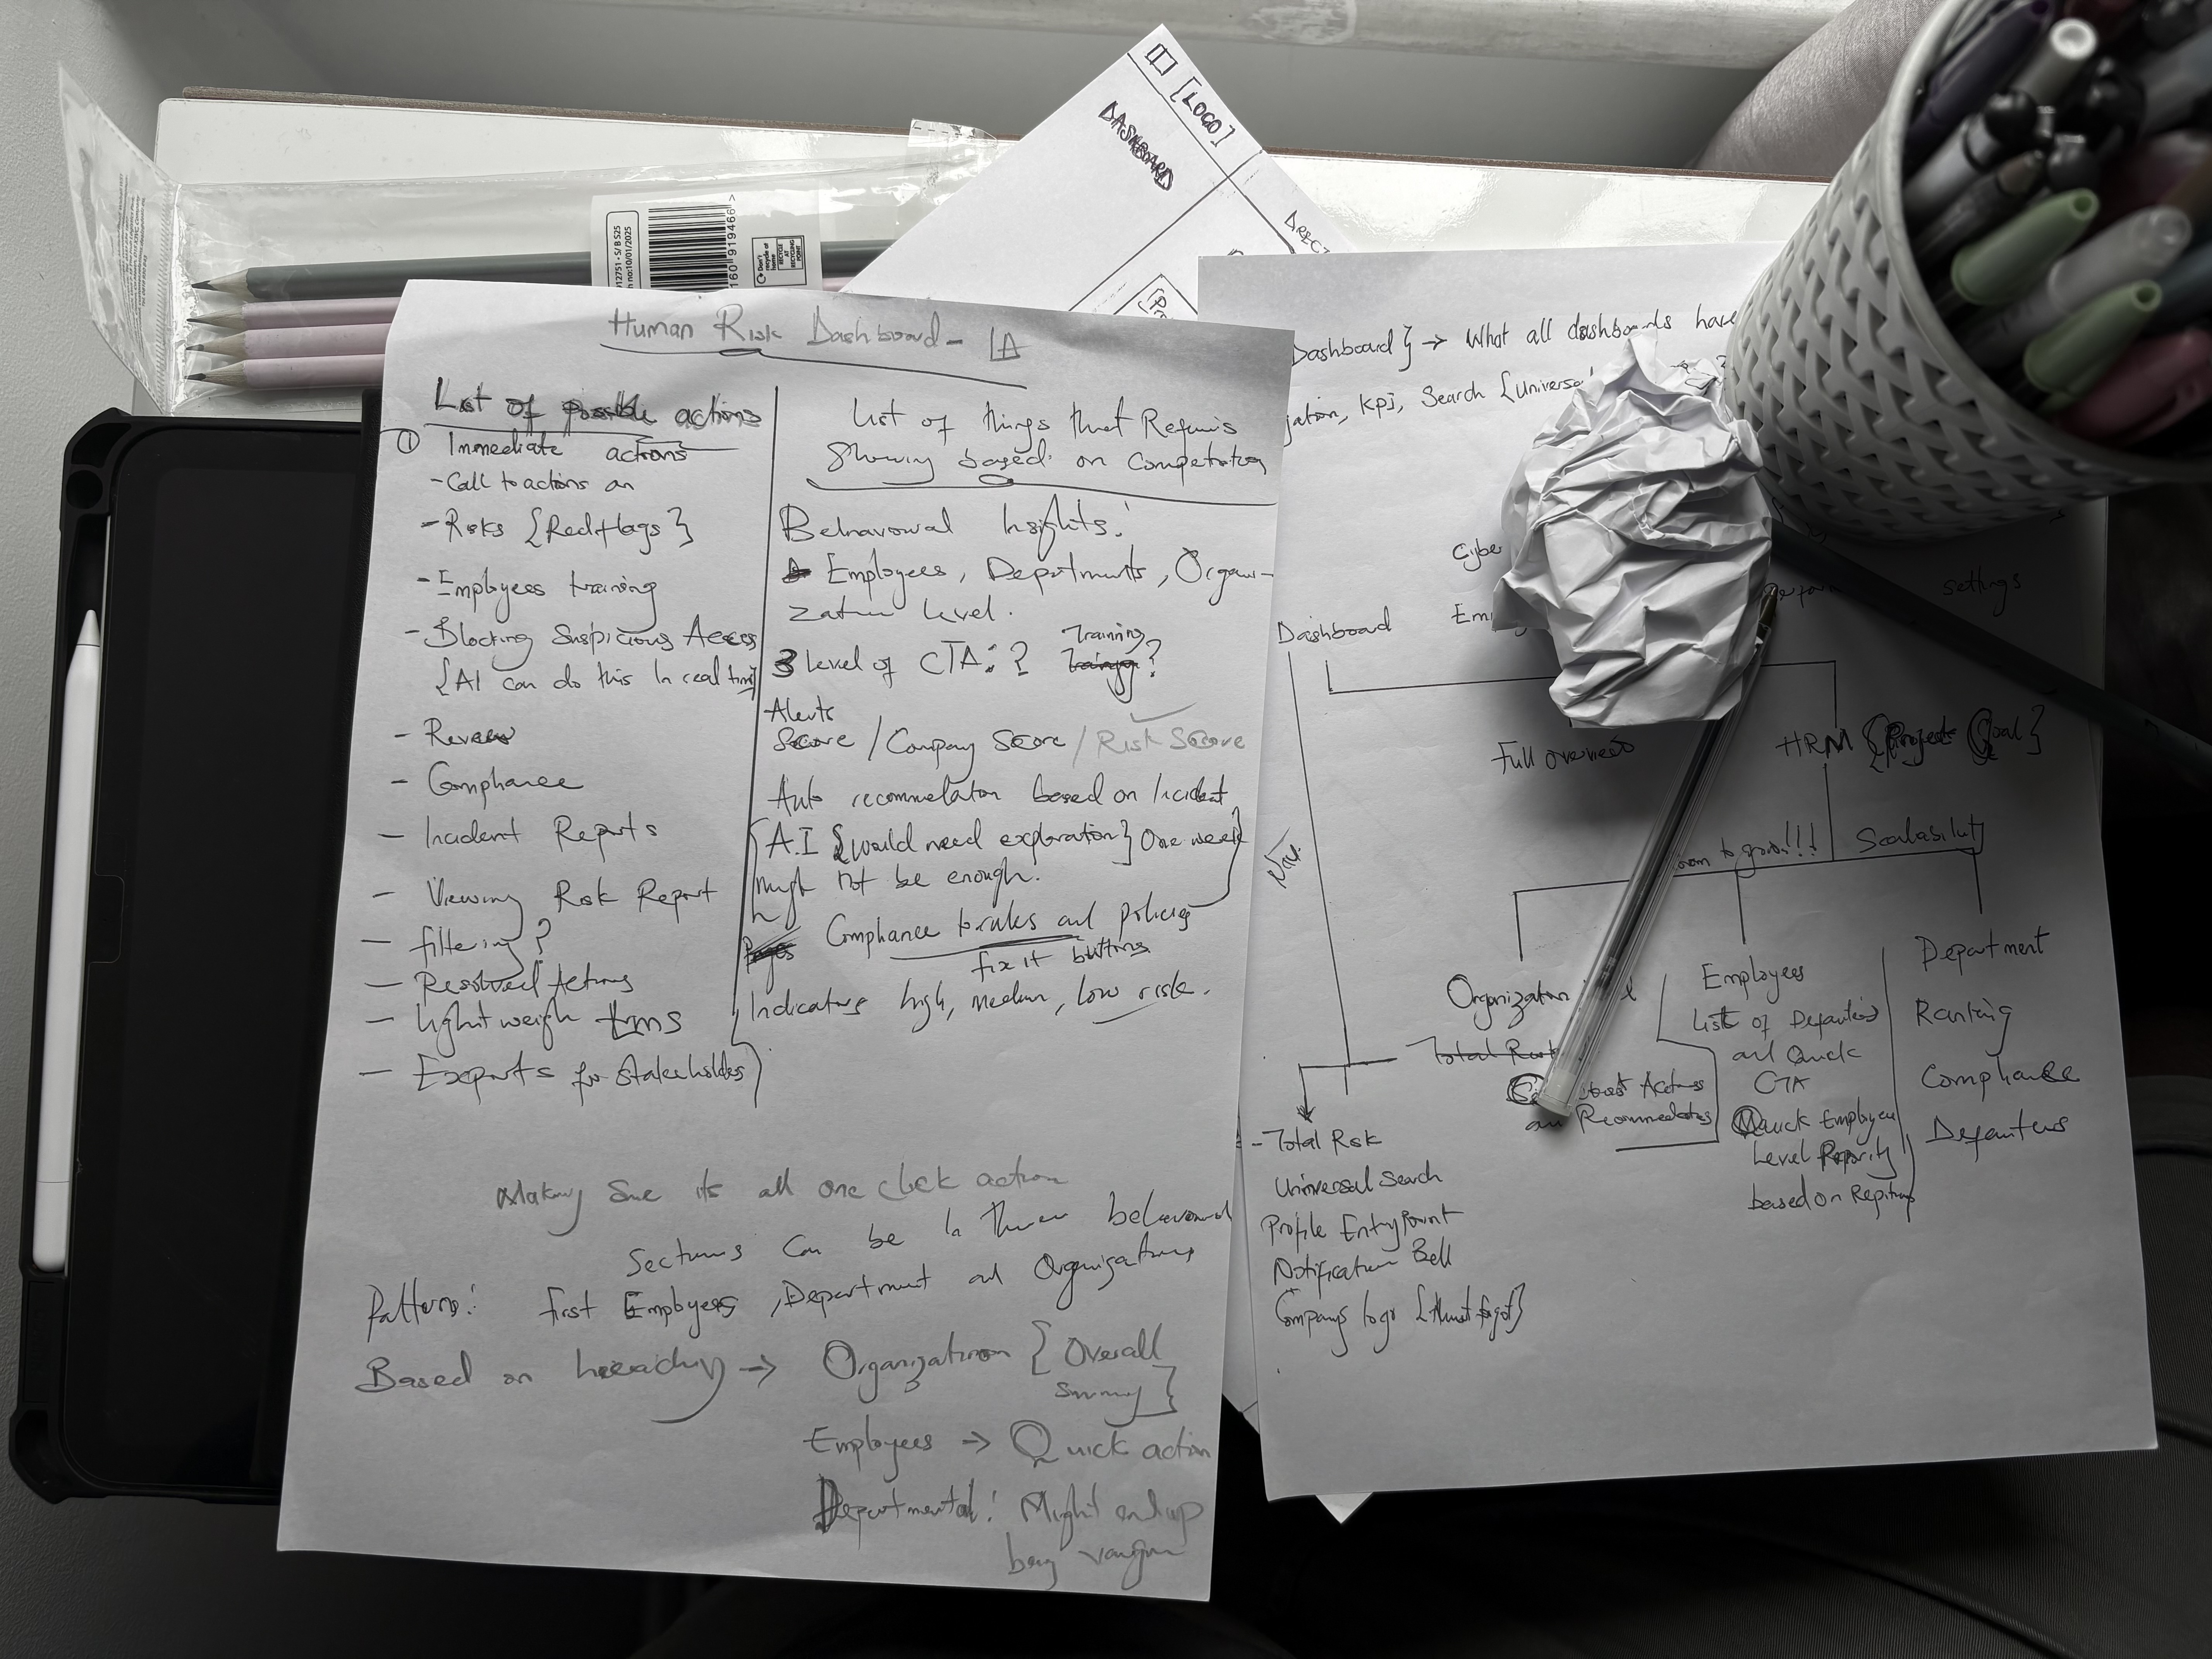 Human Risk Dashboard - IA
List of possible actions
① Immediate actions
- Call to actions on
- Risks {Red flags}
- Employees training
- Blocking Suspicious Access
{AI can do this in real time}
- Review
- Compliance
- Incident Reports
- Viewing Risk Report
- filtering?
- Resolved Actions
- lightweigh lms
- Exports for stakeholders
List of things that Requires
Showing based on Competitors
Behavioural Insights:
Employees, Departments, Organi-
zation level.
3 Level of CTA: ? Training ?
Alerts
Score / Company Score / Risk Score
Auto recommedation based on Incident
{A.I {would need exploration} One week
might not be enough.
Compliance to rules and policies
fix it buttons
Indicators high, medium, low risk.
Making Sure its all one click action
Sections Can be in three behavioural
Patterns: first Employees, Department and Organizations
Based on hierachy → Organization {Overall
summary}
Employees → Quick action
Departmental: Might end up
being
[LOGO]
DASHBOARD
DIRECT
Dashboard} → What all dashboards have
gation, KPI, Search {Universal
Cyber
settings
Dashboard
Full overview
HRM {Project Goal}
Nav.
room to grow!!! Scalability
Organization
Total Risk
Actions
and Recommendations
Employees
List of Defaulters
and Quick
CTA
Quick Employee
Level Priority
based on
Department
Ranking
Compliance
Defaulters
- Total Risk
Universal Search
Profile Entry Point
Notification Bell
Company logo {Almost forgot}
12751 - S/B S25
no:10/01/2025
160 919466 >
Don't
recycle at
home
RECYCLE
AT
RECYCLING
POINT